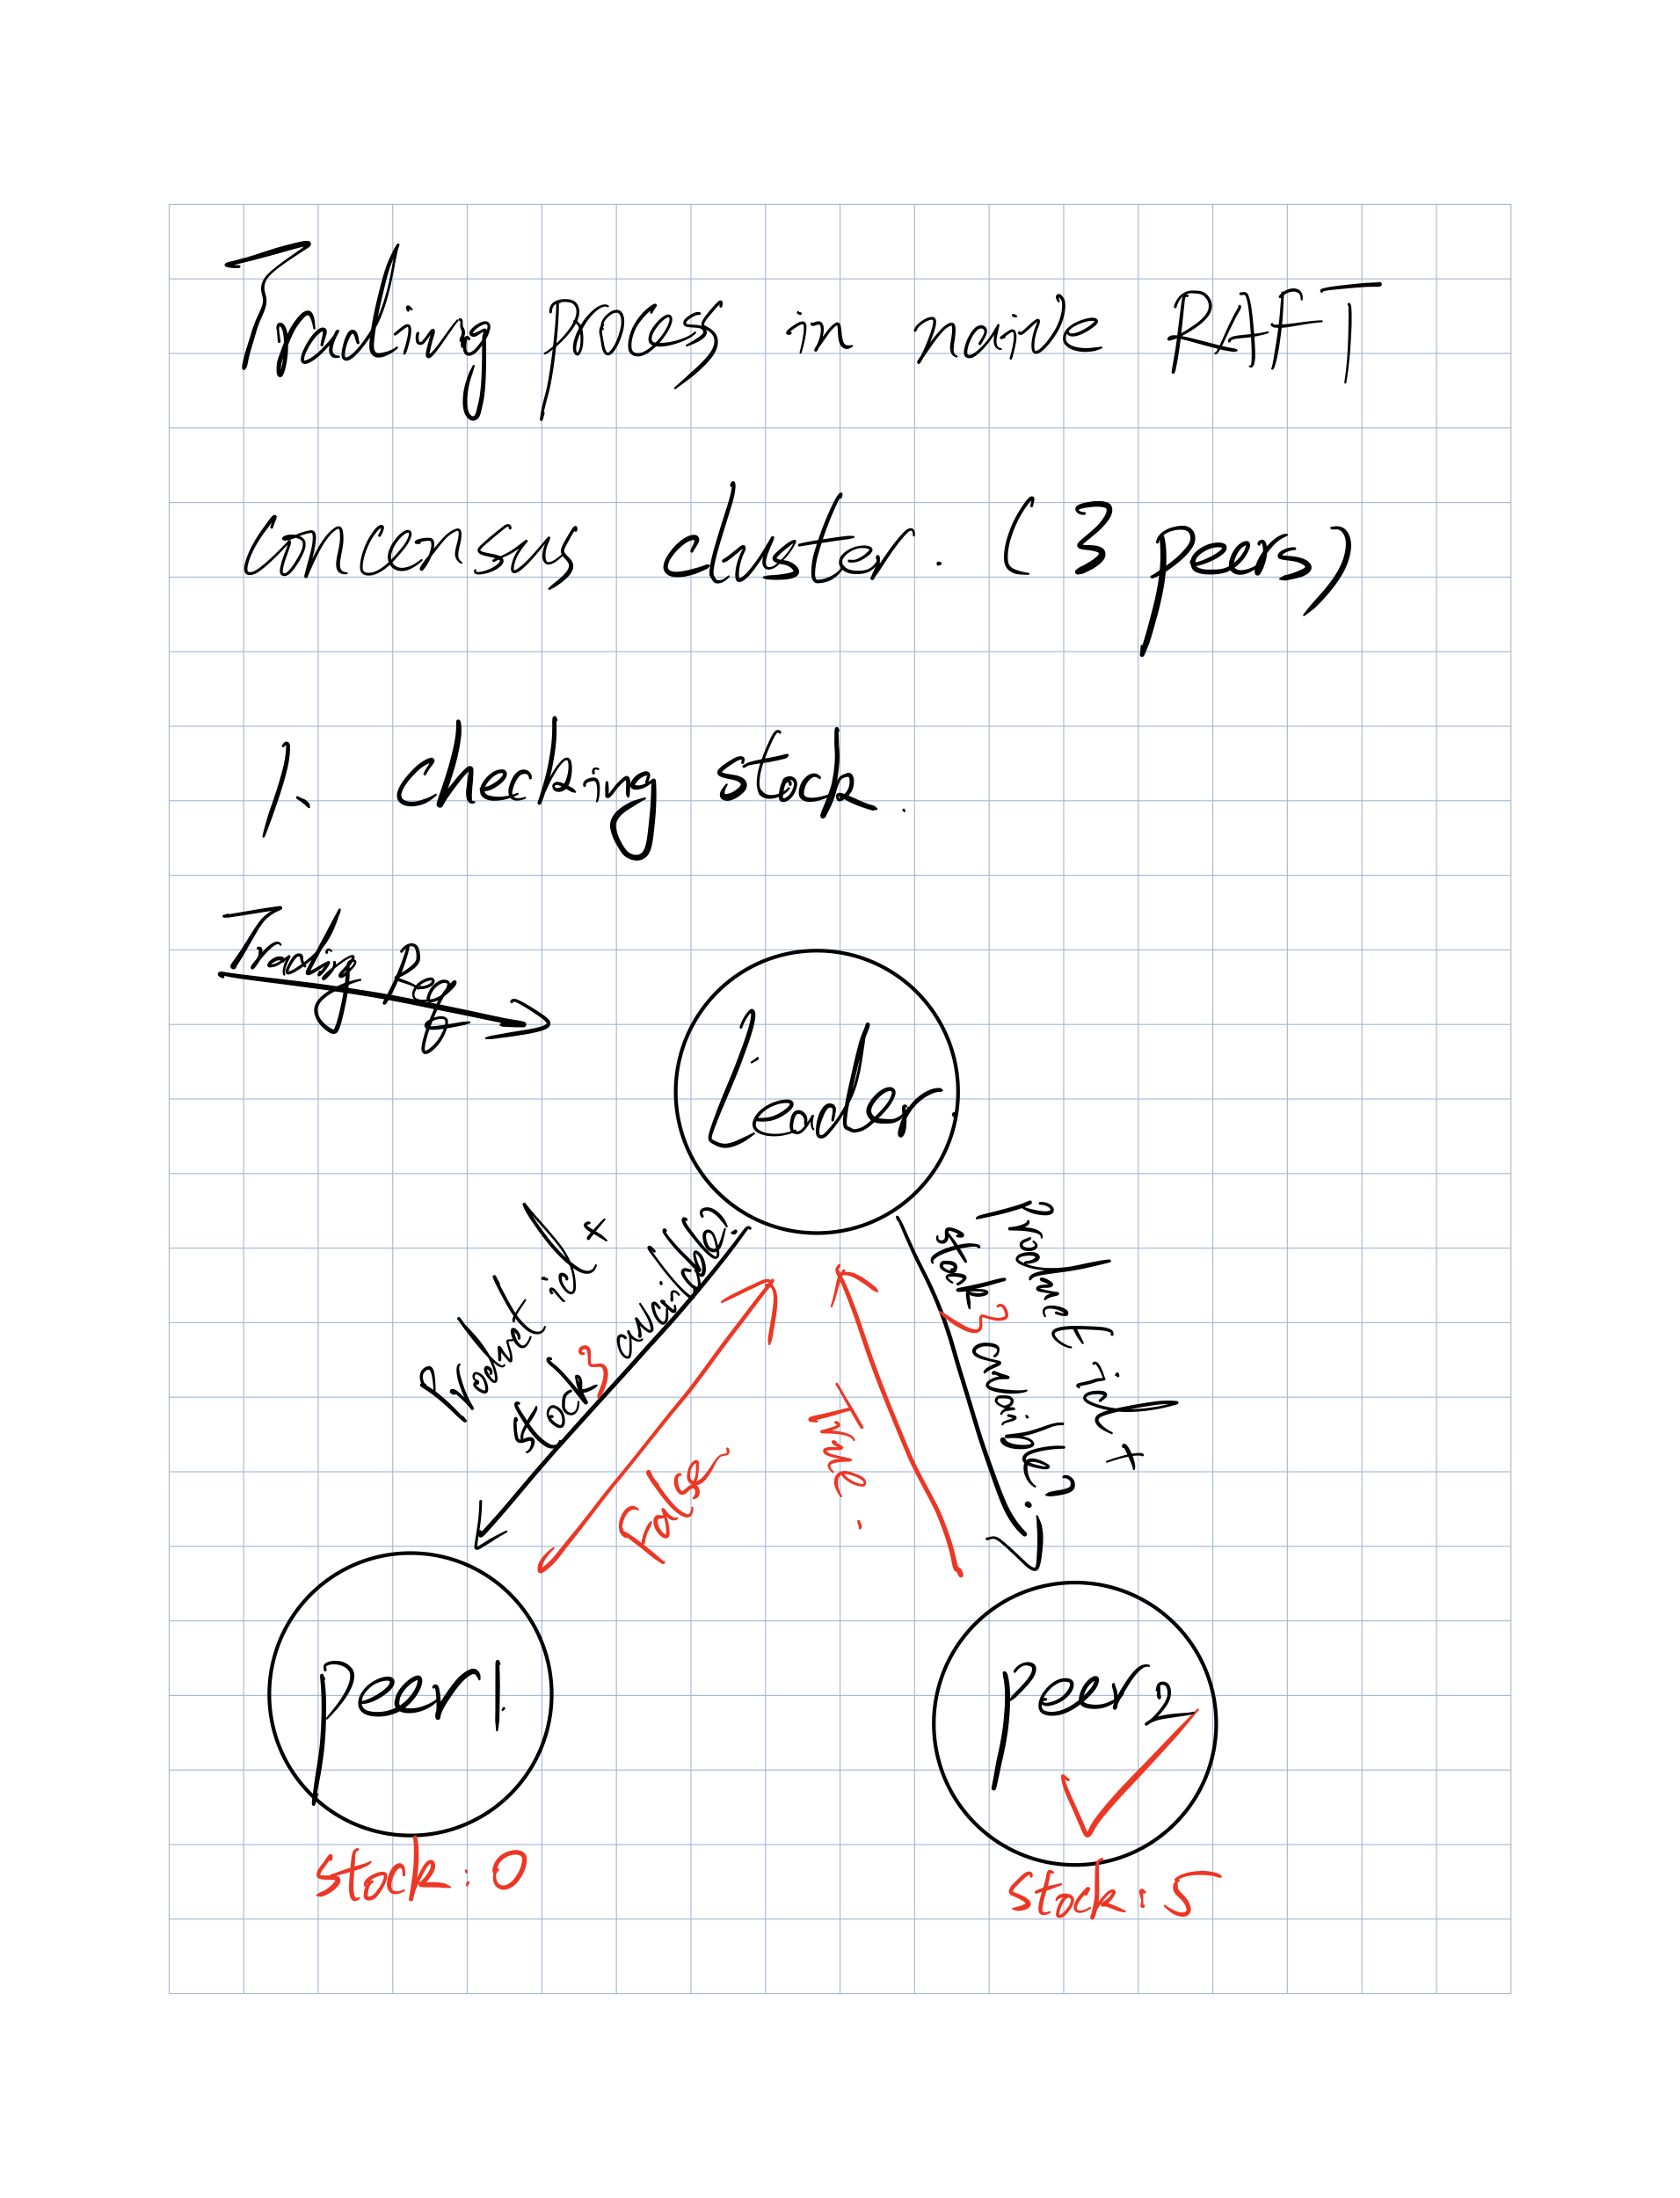 Trading process in naive RAFT
consensus cluster. (3 peers)
1. checking stock.
Trading Req
Leader.
Product id x
stock 3 available?
Product id x
stock 3 available?
False
True.
peer1.
peer2
stock: 0
stock: 5